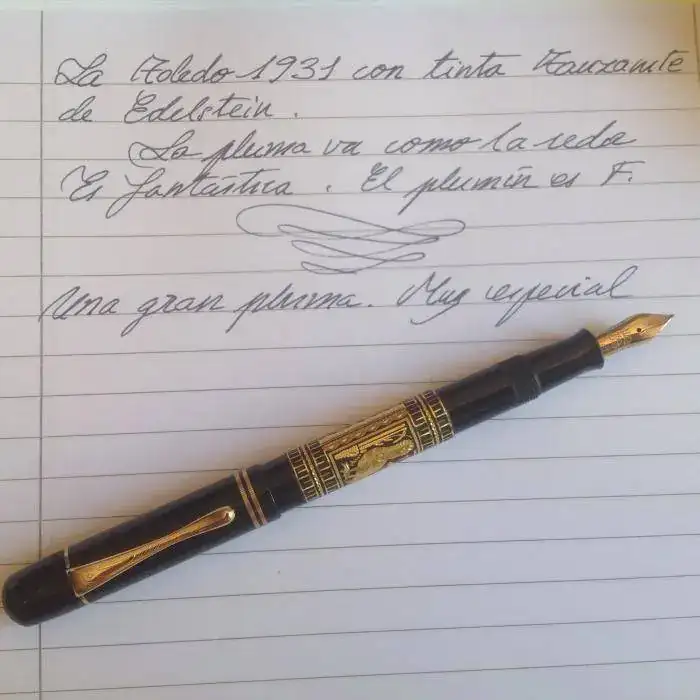 La Toledo 1931 con tinta Tanzanite
de Edelstein.
La pluma va como la seda
Es fantástica. El plumín es F.
Una gran pluma. Muy especial